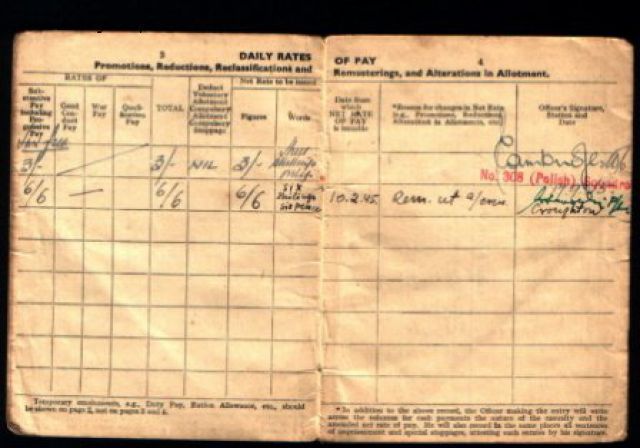 3
DAILY RATES
Promotions, Reductions, Reclassifications and
RATES OF
Net Rate to be issued
Sub-
stantive
Pay
including
Pro-
gressive
Pay
Good
Con-
duct
Pay
War
Pay
Quali-
fication
Pay
TOTAL
Deduct
Voluntary
Allotment
Compulsory
Allotment
Compulsory
Stoppage
Figures
Words
3/-
3/-
NIL
3/-
Three
Shillings
only
6/6
—
6/6
6/6
SIX
Shillings
Six Pence
Temporary emoluments, e.g., Duty Pay, Ration Allowance, etc., should
be shown on page 2, not on pages 3 and 4.
OF PAY
4
Remusterings, and Alterations in Allotment.
Date from
which
NET RATE
OF PAY
is issuable
*Reasons for changes in Net Rate
(e.g., Promotions, Reductions,
Alterations in Allotments, etc.)
Officer's Signature,
Station and
Date
No. 308 (Polish)
10.2.45.
Rem.
Croughton
* In addition to the above record, the Officer making the entry will write
across the columns for cash payments the nature of the casualty and the
amended net rate of pay. He will also record in the same places all sentences
of imprisonment and special stoppages, attesting such entries by his signature.